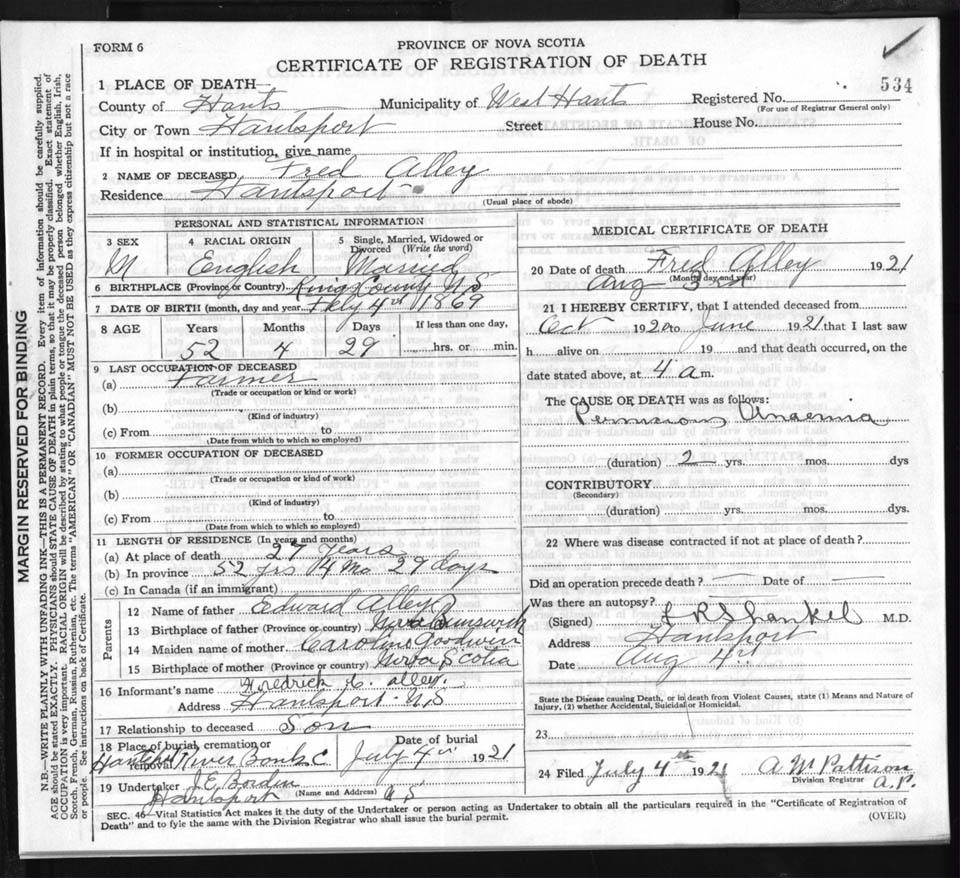 FORM 6
PROVINCE OF NOVA SCOTIA
CERTIFICATE OF REGISTRATION OF DEATH
534
1 PLACE OF DEATH
County of Hants Municipality of West Hants Registered No.
(For use of Registrar General only)
City or Town Hantsport Street House No.
If in hospital or institution, give name
2 NAME OF DECEASED Fred Alley
Residence Hantsport
(Usual place of abode)
PERSONAL AND STATISTICAL INFORMATION
3 SEX 4 RACIAL ORIGIN 5 Single, Married, Widowed or Divorced (Write the word)
M English Married
6 BIRTHPLACE (Province or Country) Kings County N.S
7 DATE OF BIRTH (month, day and year) 4th 1869
8 AGE Years Months Days If less than one day,
52 4 29 hrs. or min.
9 LAST OCCUPATION OF DECEASED
(a) Farmer
(Trade or occupation or kind of work)
(b)
(Kind of industry)
(c) From to
(Date from which to which so employed)
10 FORMER OCCUPATION OF DECEASED
(a)
(Trade or occupation or kind of work)
(b)
(Kind of industry)
(c) From to
(Date from which to which so employed)
11 LENGTH OF RESIDENCE (In years and months)
(a) At place of death 27 years
(b) In province 52 yrs 4 Mo 29 days
(c) In Canada (if an immigrant)
Parents
12 Name of father Edward Alley
13 Birthplace of father (Province or country) New Brunswick
14 Maiden name of mother Caroline Goodwin
15 Birthplace of mother (Province or country) Nova Scotia
16 Informant's name Fredrick C. Alley.
Address Hantsport N.S
17 Relationship to deceased Son
18 Place of burial, cremation or removal Date of burial
Hantsport River Bank C July 4th 1921
19 Undertaker J.E. Borden
Hantsport (Name and Address) N S
MEDICAL CERTIFICATE OF DEATH
20 Date of death Fred Alley 1921
Aug 3rd (Month, day and year)
21 I HEREBY CERTIFY, that I attended deceased from
Oct 1920 to June 1921 that I last saw
h alive on 19 and that death occurred, on the
date stated above, at 4 a m.
The CAUSE OF DEATH was as follows:
Pernicious Anaemia
(duration) 2 yrs. mos. dys
CONTRIBUTORY
(Secondary)
(duration) yrs. mos. dys.
22 Where was disease contracted if not at place of death?
Did an operation precede death? — Date of —
Was there an autopsy?
(Signed) Shankel M.D.
Address Hantsport
Date Aug 4th
State the Disease causing Death, or in death from Violent Causes, state (1) Means and Nature of Injury, (2) whether Accidental, Suicidal or Homicidal.
23
24 Filed July 4th 1921 A W Pattison
Division Registrar
SEC. 46 Vital Statistics Act makes it the duty of the Undertaker or person acting as Undertaker to obtain all the particulars required in the "Certificate of Registration of
Death" and to fyle the same with the Division Registrar who shall issue the burial permit.
(OVER)
MARGIN RESERVED FOR BINDING
N.B.—WRITE PLAINLY WITH UNFADING INK—THIS IS A PERMANENT RECORD. Every item of information should be carefully supplied.
AGE should be stated EXACTLY. PHYSICIANS should STATE CAUSE OF DEATH in plain terms, so that it may be properly classified. Exact statement of
OCCUPATION is very important. RACIAL ORIGIN will be described by stating to what people or tongue the deceased person belonged whether English, Irish,
Scotch, French, German, Russian, Ruthenian, etc. The terms "AMERICAN" OR "CANADIAN" MUST NOT BE USED as they express citizenship but not a race
or people. See instructions on back of Certificate.